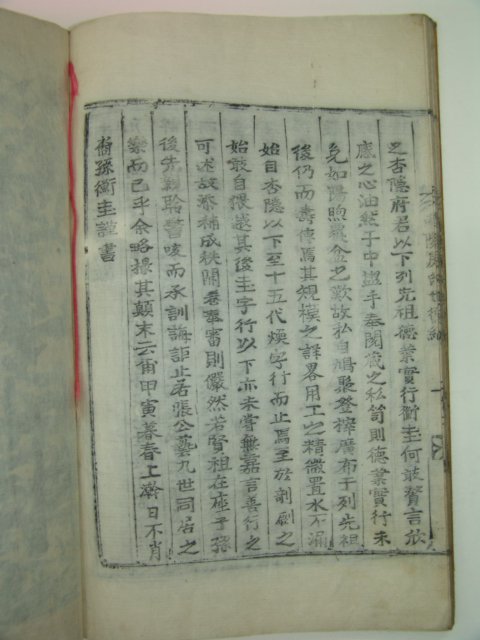 之杏隱府君以下列先祖德業實行衡圭何敢贅言於
應之心油然于中盥手奉閱藏之私笥則德業實行未
免如陽煦農金之歎故私自鳩聚登榟廣布于列先祖
後仍而壽傳焉其規模之詳畧用工之精微置水不漏
始自杏隱以下至十五代煥字行而止焉至於剞劂之
始敢自猥越其後圭字行以下亦未嘗無嘉言善行之
可述故添補成秩開卷奉審則儼然若賢祖在座子孫
後先聆謦咳而承訓誨詎止若張公藝九世同居之
而已乎余略據其顛末云爾甲寅暮春上澣日不肖
裔孫衡圭謹書